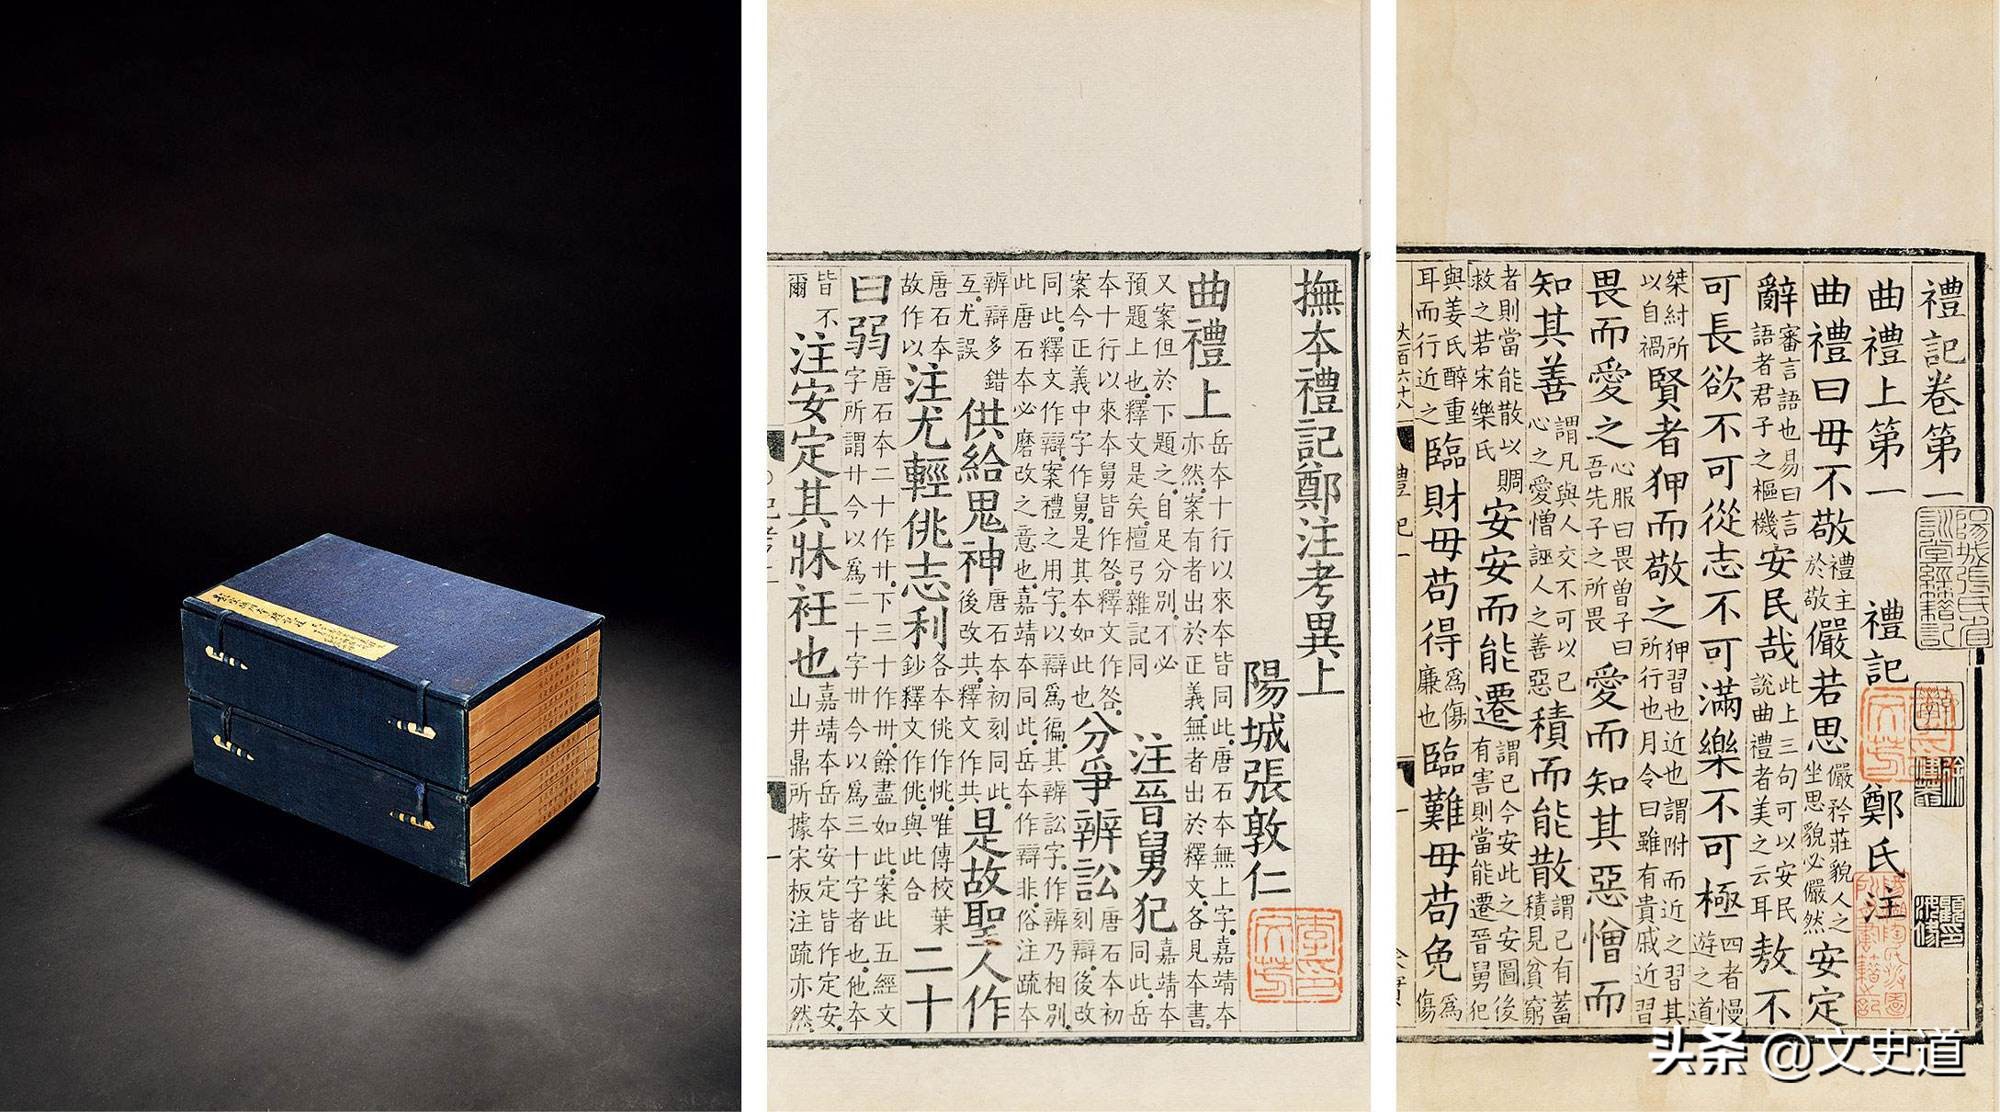 撫本禮記鄭注考異上
陽城張敦仁
曲禮上岳本十行以來本皆同此唐石本無上字嘉靖本亦然案有者出於正義無者出於釋文各見本書
又案但於下題之自足分別不必預題上也釋文是矣檀弓雜記同注晉舅犯嘉靖本同此岳
本十行以來本舅皆作咎釋文作咎案今正義中字作舅是其本如此也分爭辨訟唐石本初刻辯後改
同此釋文作辯案禮之用字以辯爲徧其辨訟字作辨乃相別此唐石本必磨改之意也嘉靖本同此岳本作辯非俗注疏本
辨辯多錯互尤誤供給鬼神唐石本初刻同此後改共釋文作共是故聖人作
唐石本故作以注尤輕佻志利各本佻作恌唯傳校葉鈔釋文作佻與此合二十
曰弱唐石本二十作廿下三十作卅餘盡如此案此五經文字所謂廿今以爲二十字卅今以爲三十字者也他本
皆不爾注安定其牀衽也嘉靖本岳本安定皆作定安山井鼎所據宋板注疏亦然
禮記卷第一
曲禮上第一 禮記 鄭氏注
曲禮曰毋不敬禮主於敬儼若思儼矜莊貌人之坐思貌必儼然安定
辭審言語也易曰言語者君子之樞機安民哉此上三句可以安民說曲禮者美之云耳敖不
可長欲不可從志不可滿樂不可極四者慢遊之道
桀紂所以自禍賢者狎而敬之狎習也近也謂附而近之習其所行也月令曰雖有貴戚近習
畏而愛之心服曰畏曾子曰吾先子之所畏愛而知其惡憎而
知其善謂凡與人交不可以己心之愛憎誣人之善惡積而能散謂己有蓄積見貧窮
者則當能散以賙救之若宋樂氏安安而能遷謂己今安此之安圖後有害則當能遷晉舅犯
與姜氏醉重耳而行近之臨財毋苟得爲傷廉也臨難毋苟免爲傷
大一百六十八
禮記一
头条 @文史道